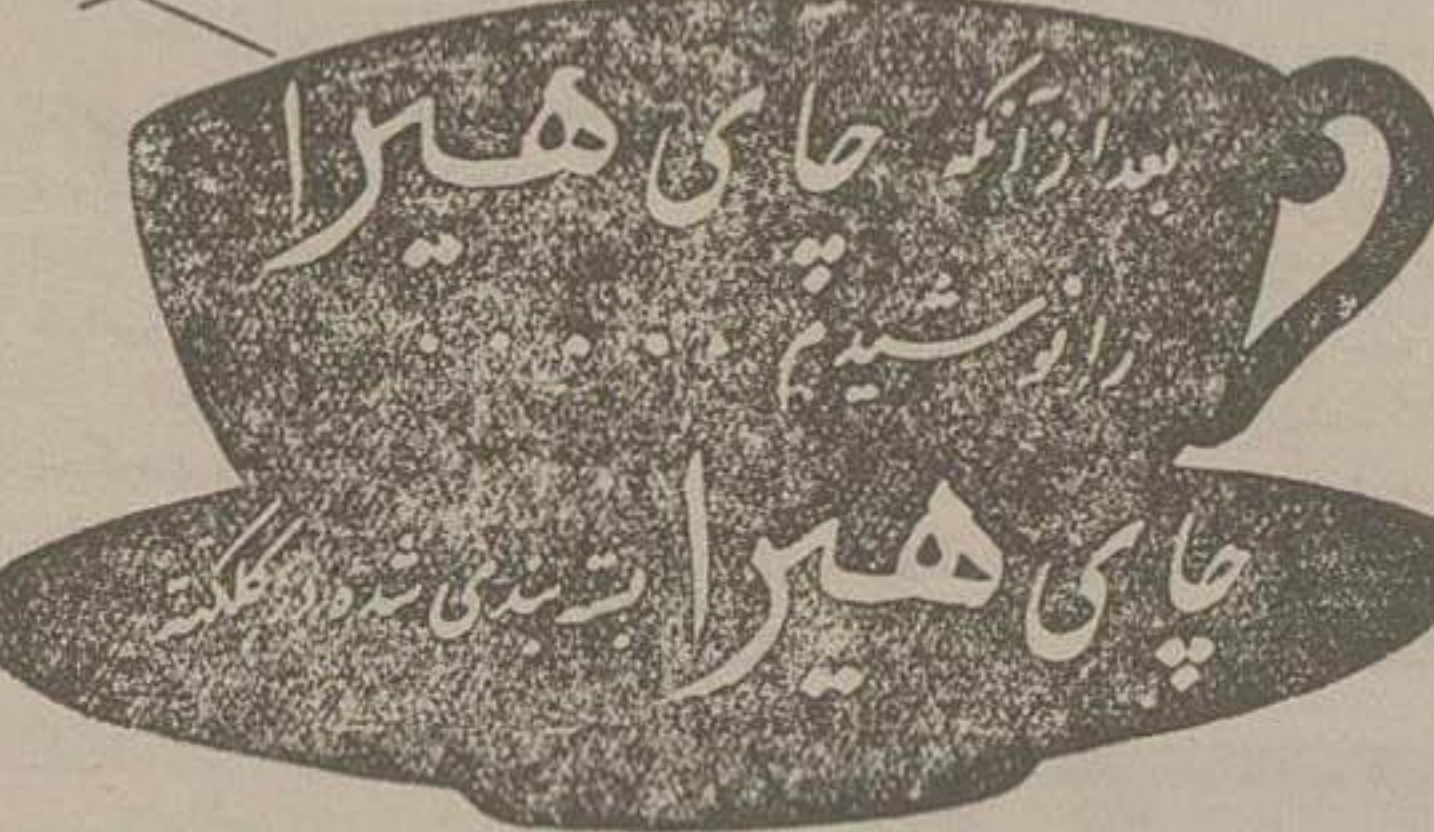 بعد از آنکه چای هیرا
را نوشیدیم .......
چای هیرا بسته بندی شده در کلکته